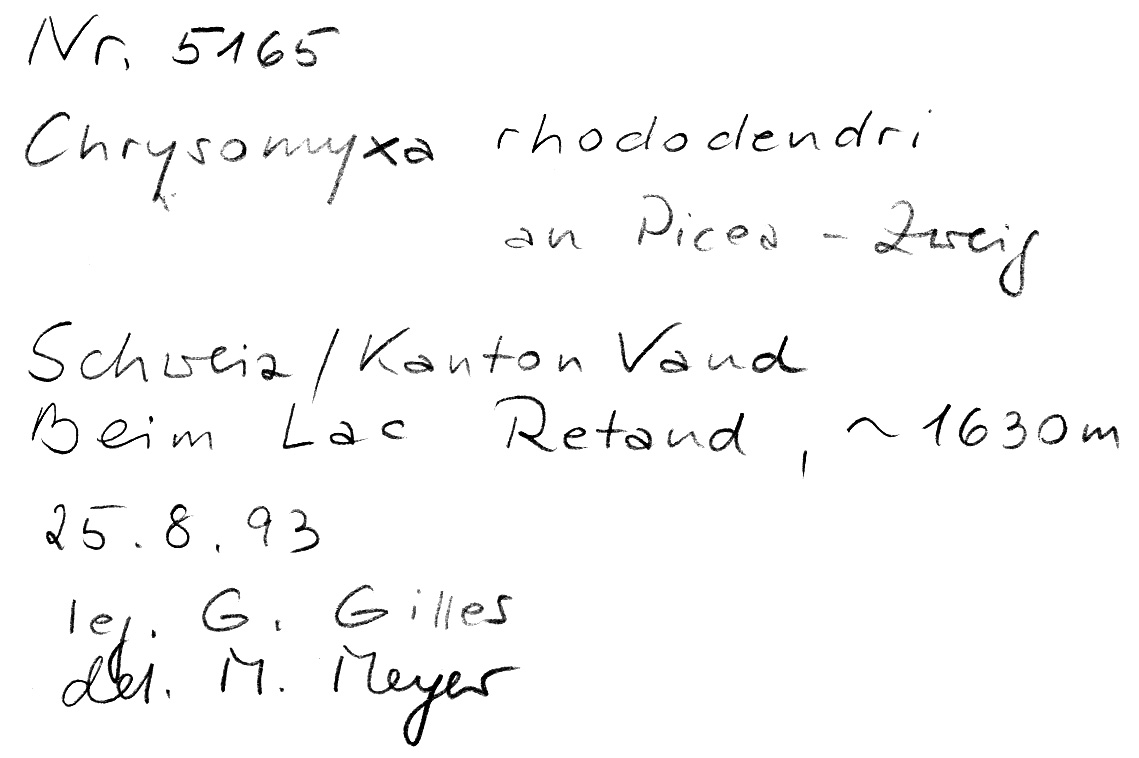 Nr. 5165
Chrysomyxa rhododendri
an Picea - Zweig
Schweiz / Kanton Vaud
Beim Lac Retaud, ~ 1630 m
25.8.93
leg. G. Gilles
det. M. Meyer